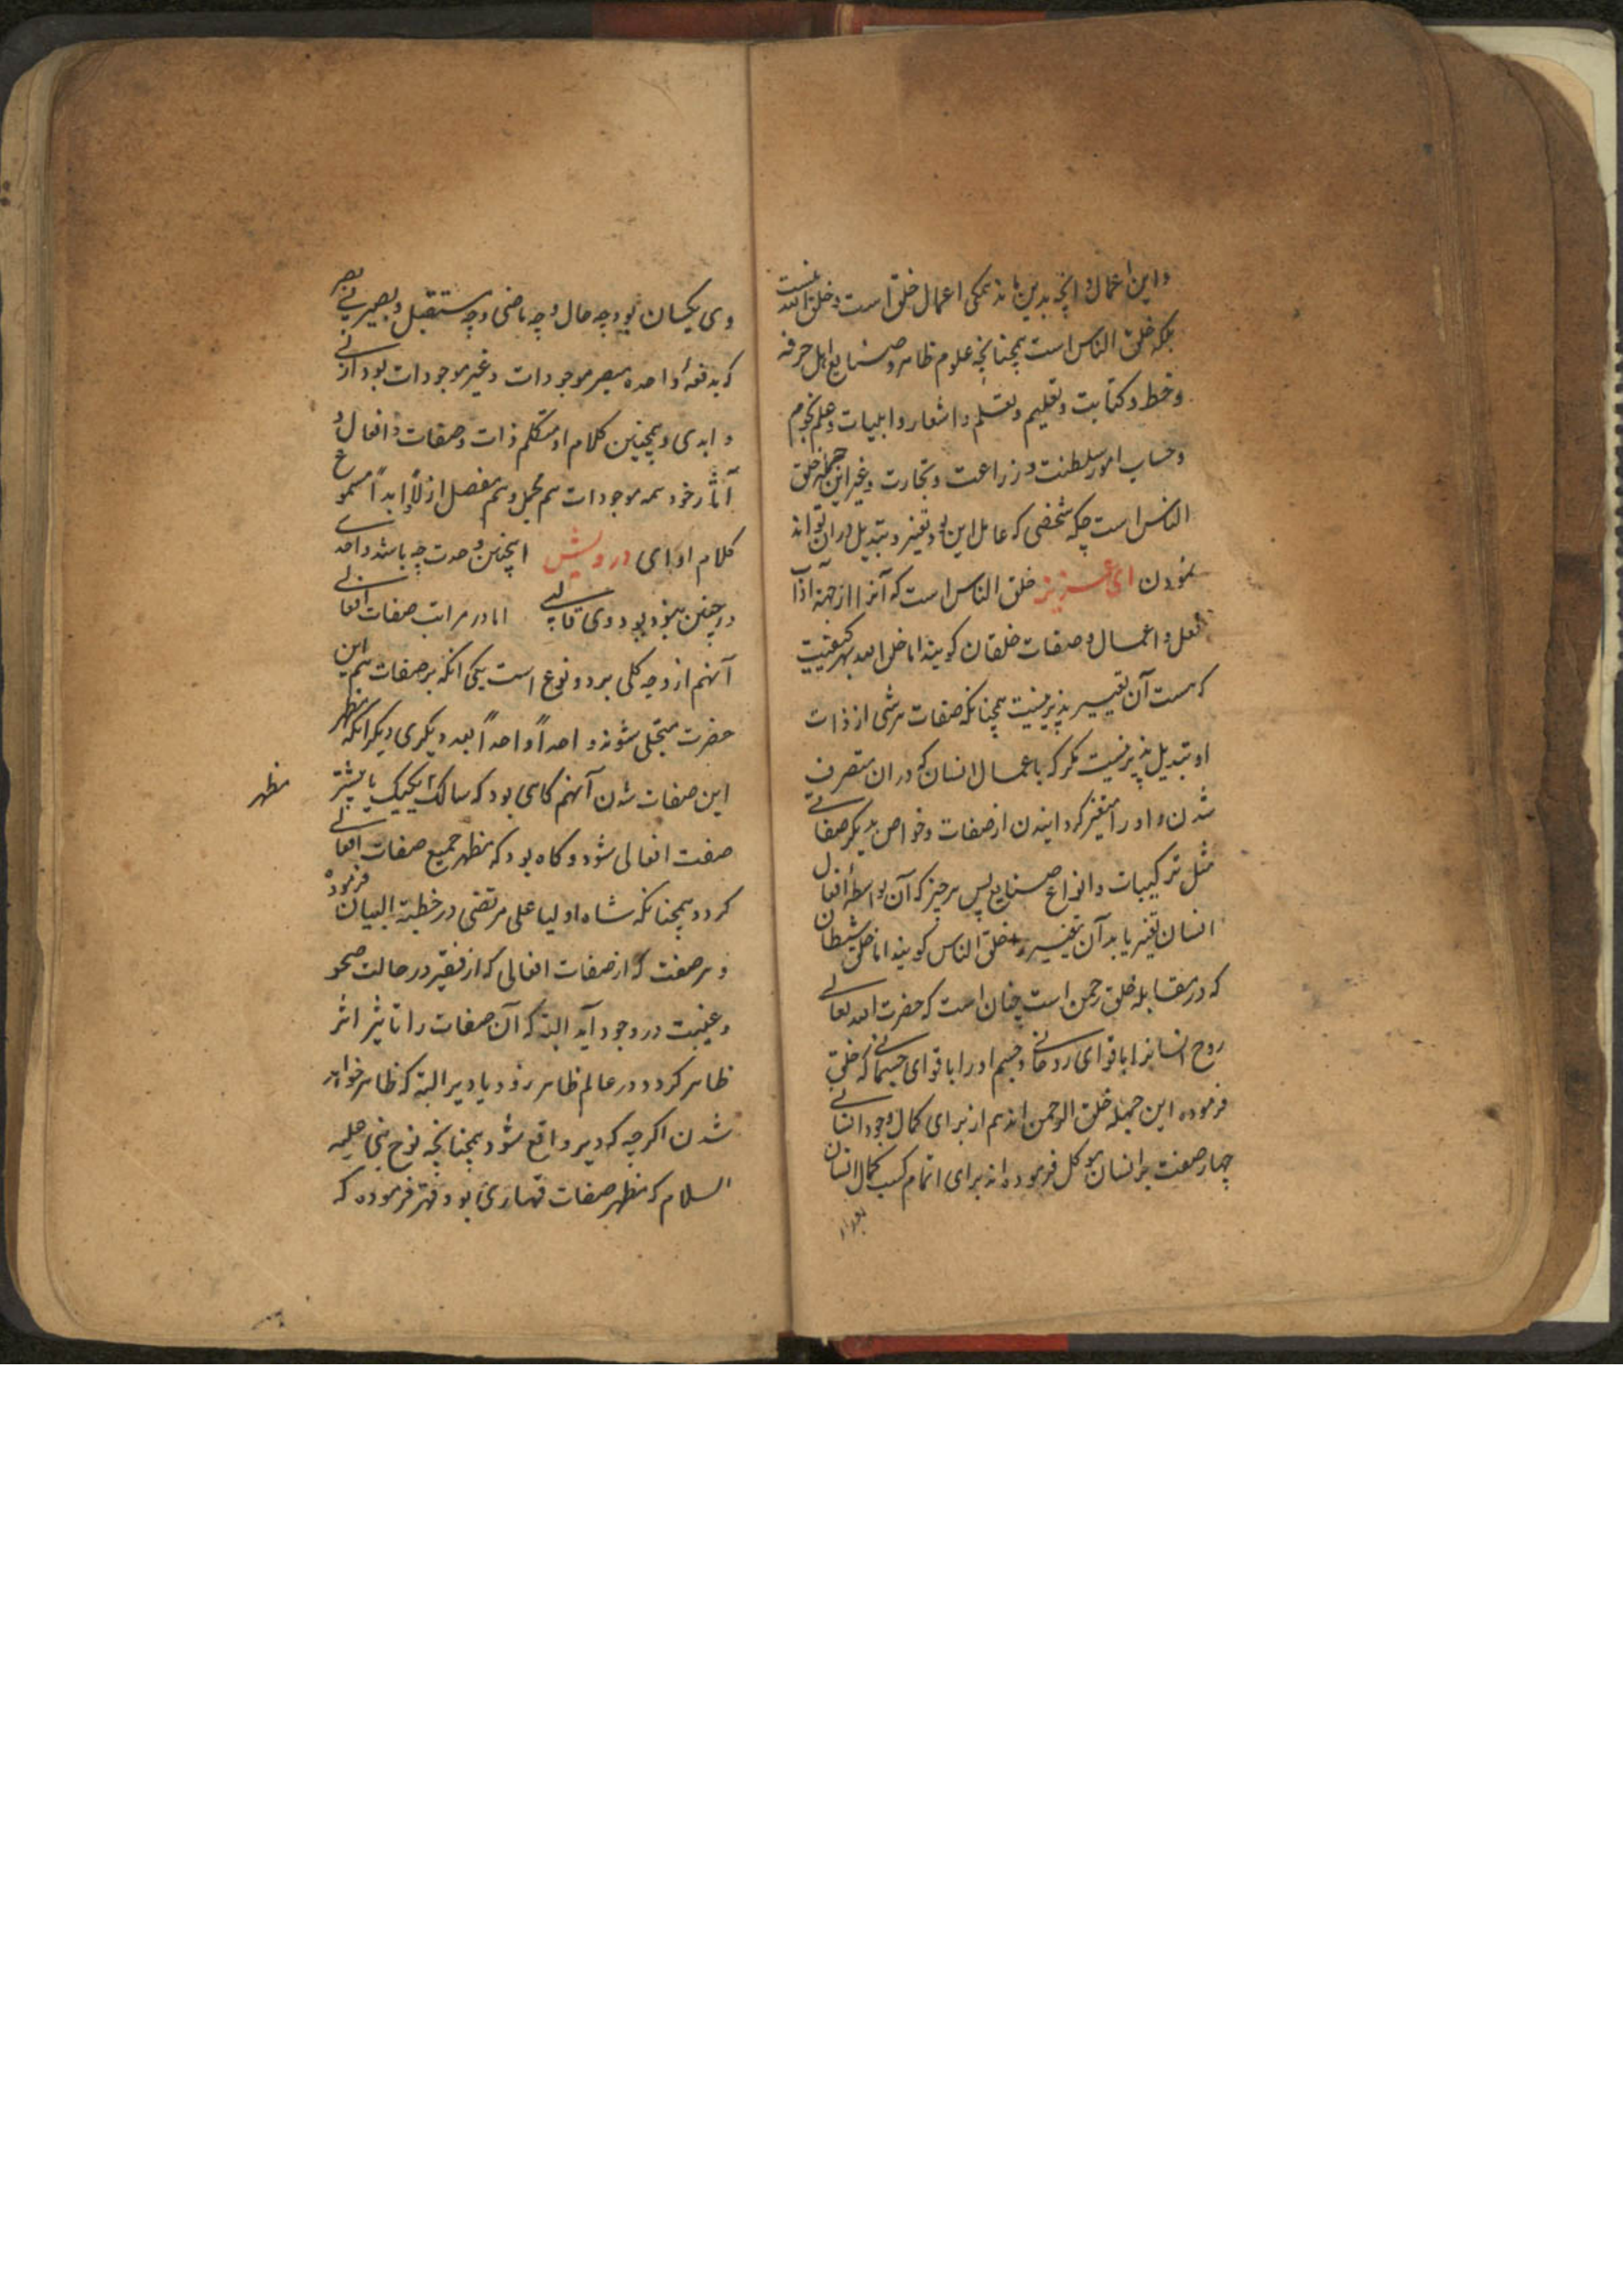 و این اعمال و آنچه بدین ماند همکی اعمال خلق است و خلق الله نیست
بلکه خلق الناس است همچنانچه علوم ظاهر و صنایع اهل حرفه
و خط و کتابت و تعلیم و تعلم و اشعار و ابیات و علم نجوم
و حساب امور سلطنت و زراعت و تجارت و غیر این جمله خلق
الناس است چکه شخصی که عامل این بود تغیر و تبدیل در ان تواند
نمودن ای عزیز خلق الناس است که آنرا از جهته آداب
فعل و اعمال و صفات خلقان کویند اما خلق الله بهر کیفیت
که هست آن تغییر پذیر نیست همچنانکه صفات هر شی از ذات
او تبدیل پذیر نیست مکر که باعمال انسان که در ان متصرف
شدن و او را متغیر کردانیدن از صفات و خواص بدیکر صفاتی
مثل ترکیبات و انواع صنایع پس هر چیز که آن بواسطه افعال
انسان تغیر یابد آن تغییر را خلق الناس کویند اما خلق شیطان
که در مقابله خلق رحمن است چنان است که حضرت الله تعالی
روح انسانرا با قوای روحانی و جسم او را با قوای جسمانی که خلق
فرموده این جمله خلق الرحمن اند هم از برای کمال وجود انسانی
چهار صفت بر انسان موکل فرموده اند برای اتمام کسب کمال انسان
وی یکسان بود چه حال و چه ماضی و چه مستقبل و بصیر نی بصر
که بدفعهٔ واحده مبصر موجودات و غیر موجودات بود ازلی
و ابدی و همچنین کلام او متکلم ذات و صفات و افعال و
آثار خود همه موجودات هم مجمل و هم مفصل ازلاً و ابداً مسموع
کلام او ای درویش اینچنین وحدت چه باشد واحدی
در چنین بود وی اما در مراتب صفات افعالی
آنهم از وجه کلی بر دو نوع است یکی انکه بر صفات هم این
حضرت متجلی شوند واحداً واحداً بعد دیکری دیکر انکه مظهر
این صفات شدن آنهم کاهی بود که سالک یکیک یا بیشتر مظهر
صفت افعالی شود و کاه بود که مظهر جمیع صفات افعالی
کردد همچنانکه شاه اولیا علی مرتضی در خطبة البیان فرموده
و هر صفت که از صفات افعالی که از فقیر در حالت صحو
و غیبت در وجود آید البته که آن صفات را تاثیر اثر
ظاهر کردد در عالم ظاهر زود یا دیر البته که ظاهر خواهد
شدن اکرچه که دیر واقع شود همچنانچه نوح نبی علیه
السلام که مظهر صفات قهاری بود قهر فرموده که